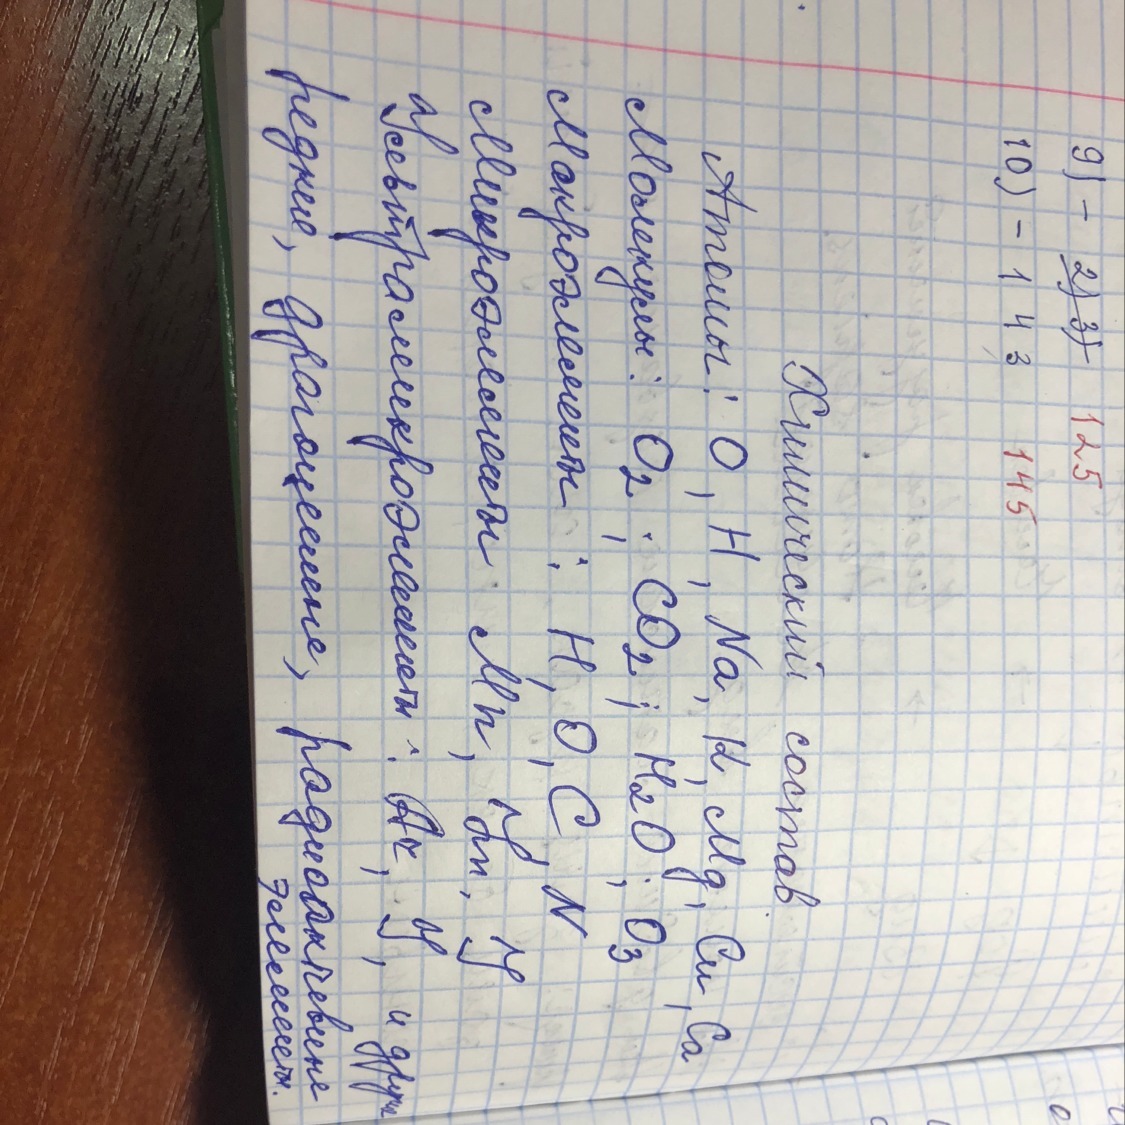 9) - 2) 3) 125
10) - 1 4 3 145
Химический состав
Атомы: O, H, Na, K, Mg, Cu, Ca
Молекулы: O2, CO2; H2O, O3
Макроэлементы: H, O, C, N
Микроэлементы Mn, Zn, У
Ультрамикроэлементы: У, и други
редкие, драгоценные, радиоактивные
элементы.